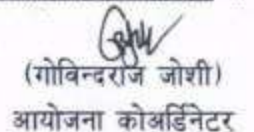 (गोविन्दराज जोशी)
आयोजना कोअर्डिनेटर